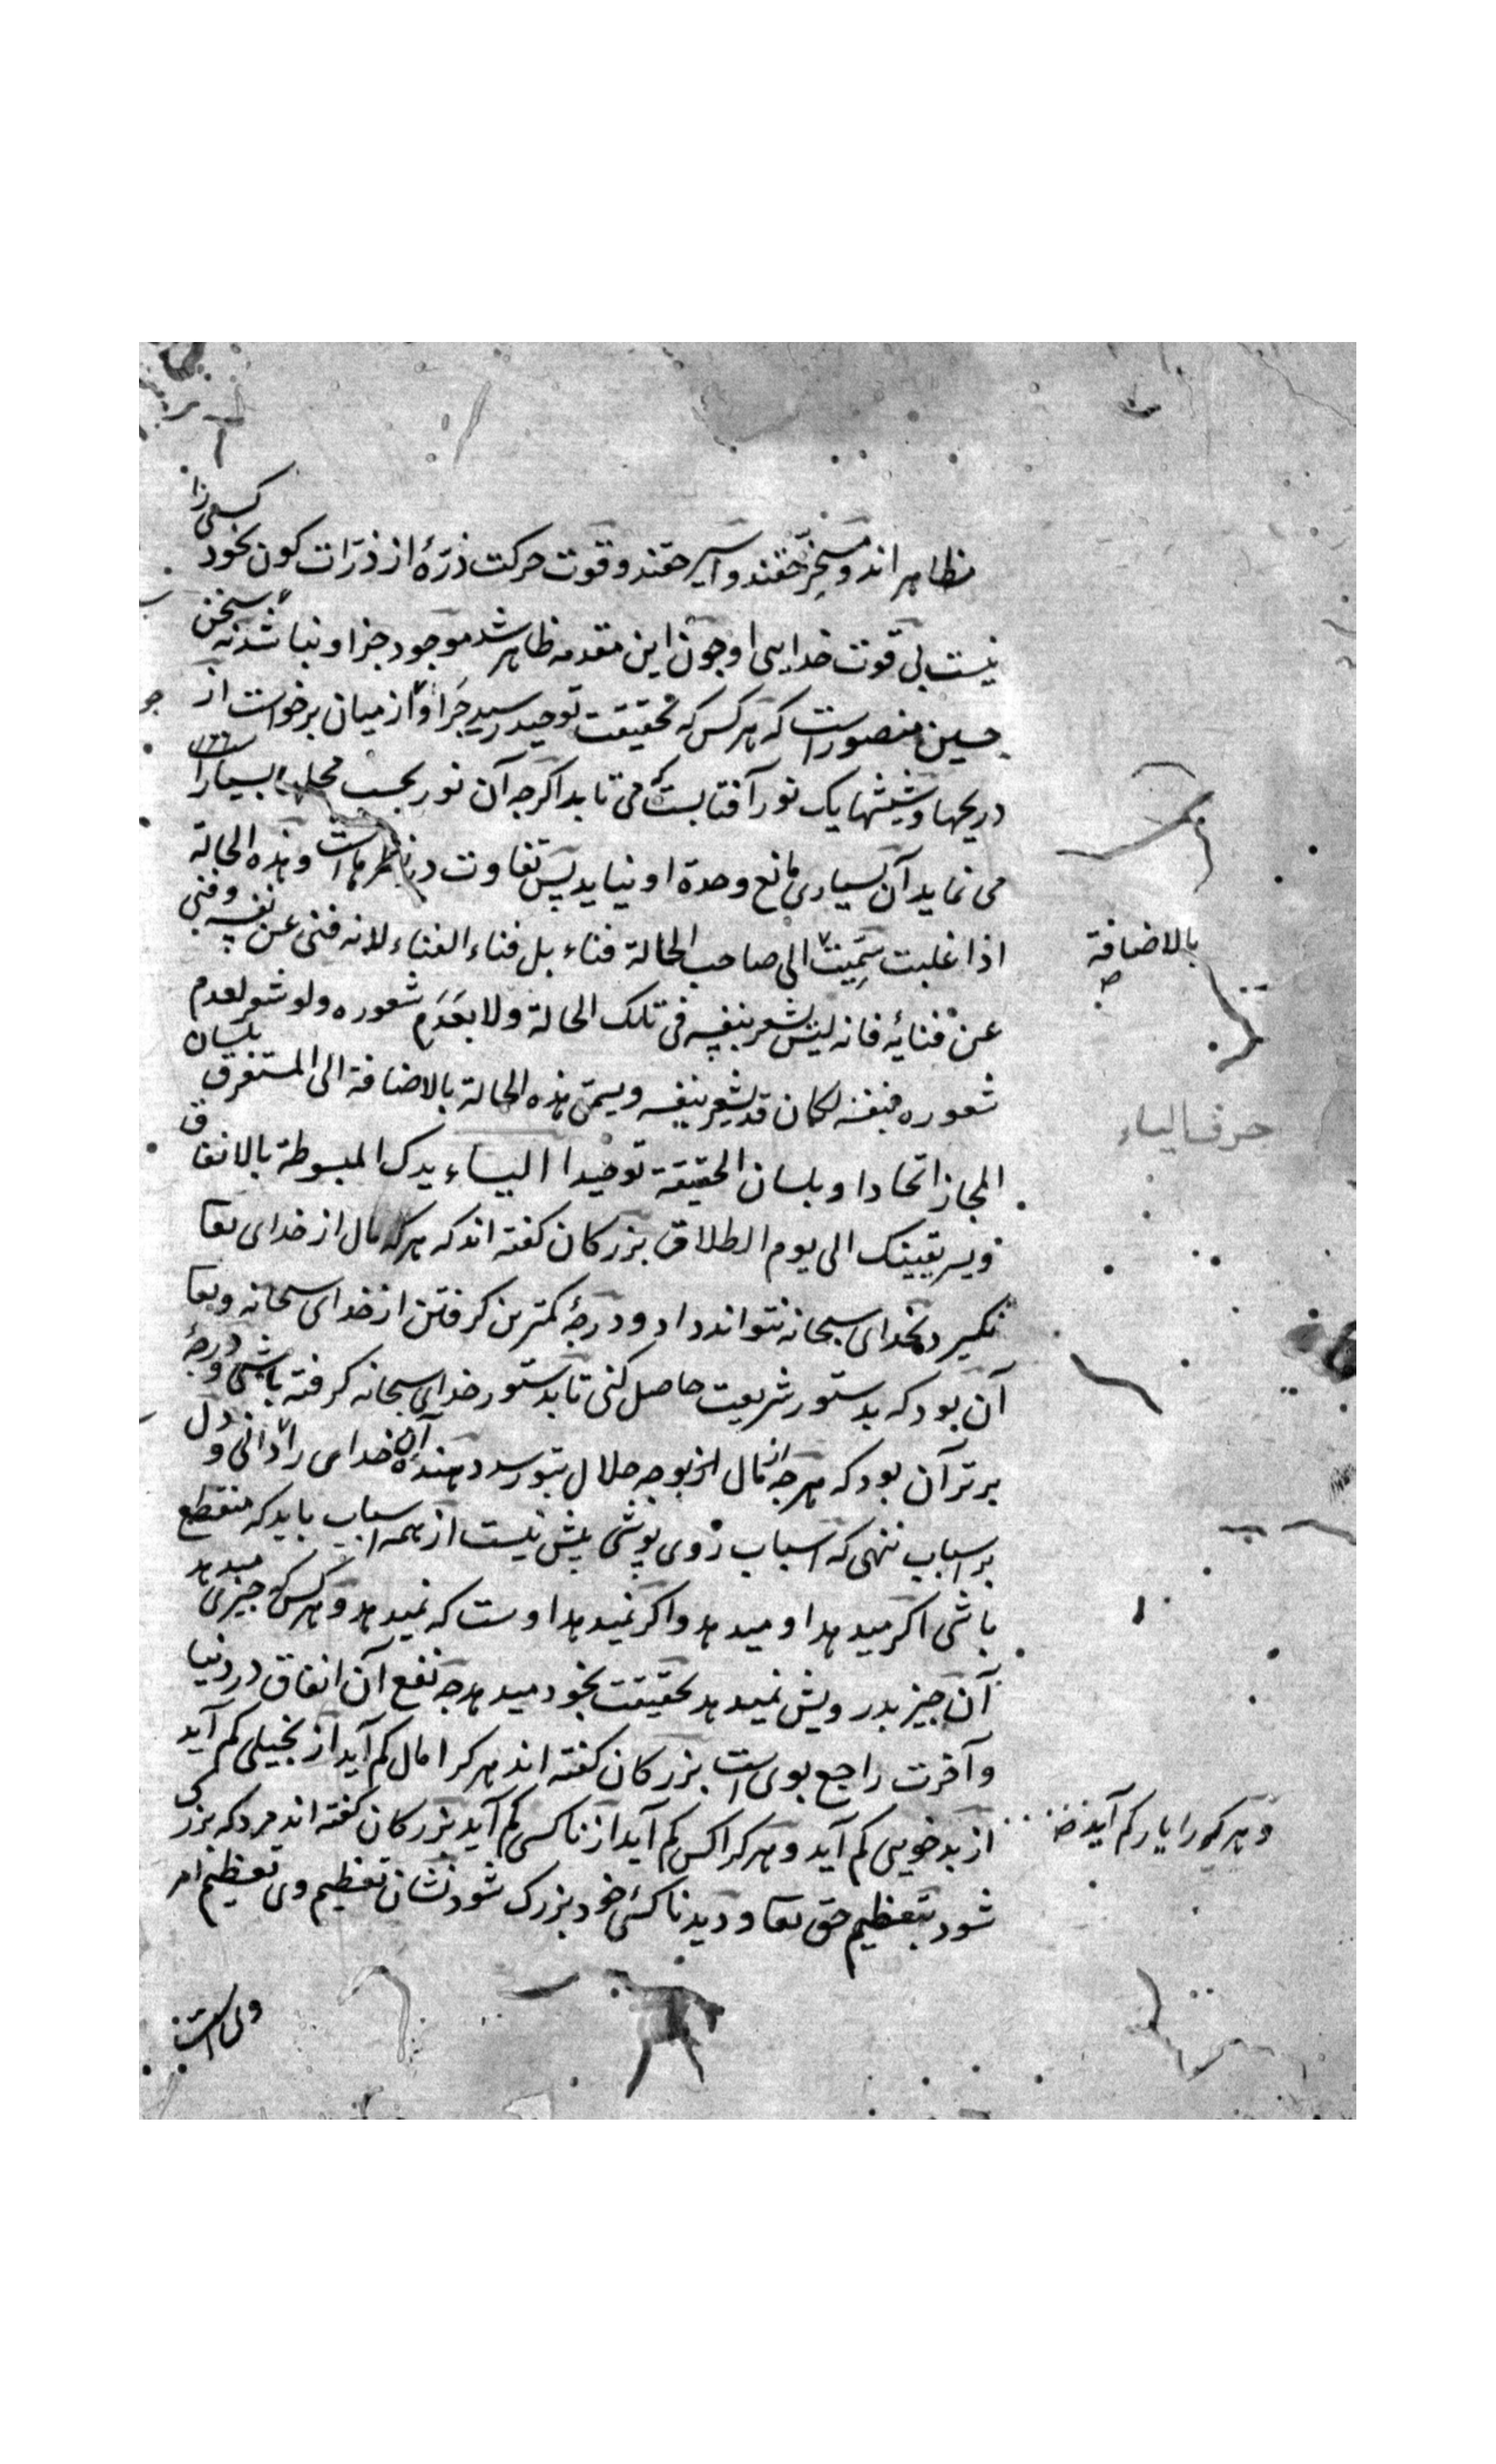 مظاهر اند و مسخّر حقند و اسیر حقند و قوت حرکت ذرّهٔ از ذرّات کون بخود کسی را
نیست بی قوت خدایی او چون این مقدمه ظاهر شد موجود جز او نباشد نه سخن
حسین منصور است که هر کس که بحقیقت توحید رسید جرا و از میان برخواست از
دریچها و شیشها یک نور آفتابست که می تابد اگرچه آن نور بحسب محل بسیار است
می نماید آن بسیاری مانع وحدة او نیاید پس تفاوت در مظهر هاست و هذه الحالة
اذا غلبت سمّیت الی صاحب الحالة فناء بل فناء الفناء لانه فنی عن نفسه و فنی
بالاضافة
عن فنائه فانه لیس یشعر بنفسه فی تلک الحالة ولا بعدم شعوره ولو شعر لعدم
شعوره بنفسه لکان قد یشعر بنفسه ویسمّی هذه الحالة بالاضافة الی المستغرق بلسان
حرف الیاء
المجاز اتحادا و بلسان الحقیقة توحیدا الیاء یدک المبسوطة بالانفاق
ویسر یقینک الی یوم الطلاق بزرکان کفته اند که هرکه مال از خدای تعا
نکیرد بخدای سبحانه نتواند داد و درجهٔ کمترین کرفتن از خدای سبحانه و تعا
آن بود که بدستور شریعت حاصل کنی تا بدستور خدای سبحانه کرفته باشی و درجهٔ
برتر آن بود که هرچه از مال از بوجه حلال بتو رسد دهنده آن خدای را دانی و دل
بر اسباب ننهی که اسباب روی پوشی بیش نیست از همه اسباب باید که منقطع
باشی اکر میدهد او میدهد و اکر نمیدهد اوست که نمیدهد و هر کس که چیزی میدهد
آن چیز بدرویش نمیدهد بحقیقت بخود میدهد چه نفع آن انفاق در دنیا
و آخرت راجع بوی است بزرکان کفته اند هر کرا مال کم آید از بخیلی کم آید
و هر کرا یار کم آید
از بدخویی کم آید و هر کرا کس کم آید از ناکسی کم آید بزرکان کفته اند مرد که بزرک
شود بتعظیم حق تعا و دید ناکسئ خود بزرک شود نشان تعظیم وی تعظیم امر
وی است